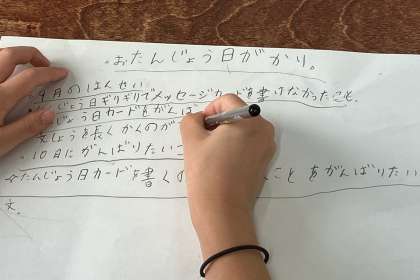 おたんじょう日がかり。
9月のはんせい
じょう日ギリギリでメッセージカードを書けなかったこと。
じょう日カードをがんば
しょうを長くかくのが
10月にがんばりたいこ
おたんじょう日カードを書くの こと をがんばりたい
文。